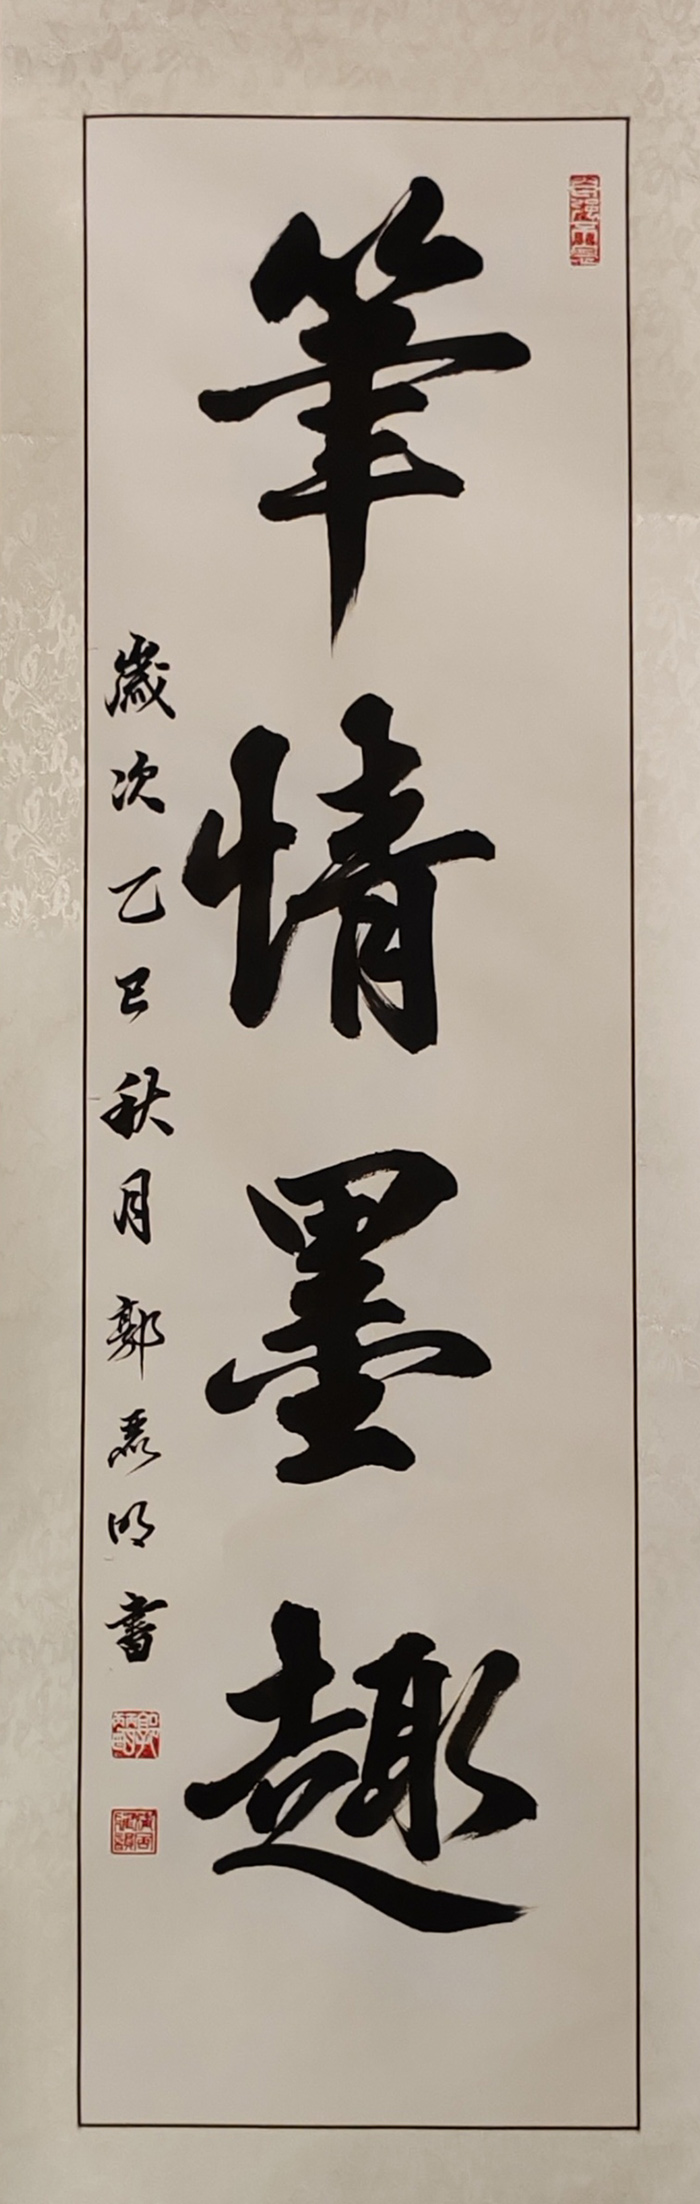 筆情墨趣
歲次乙巳秋月郭磊明書